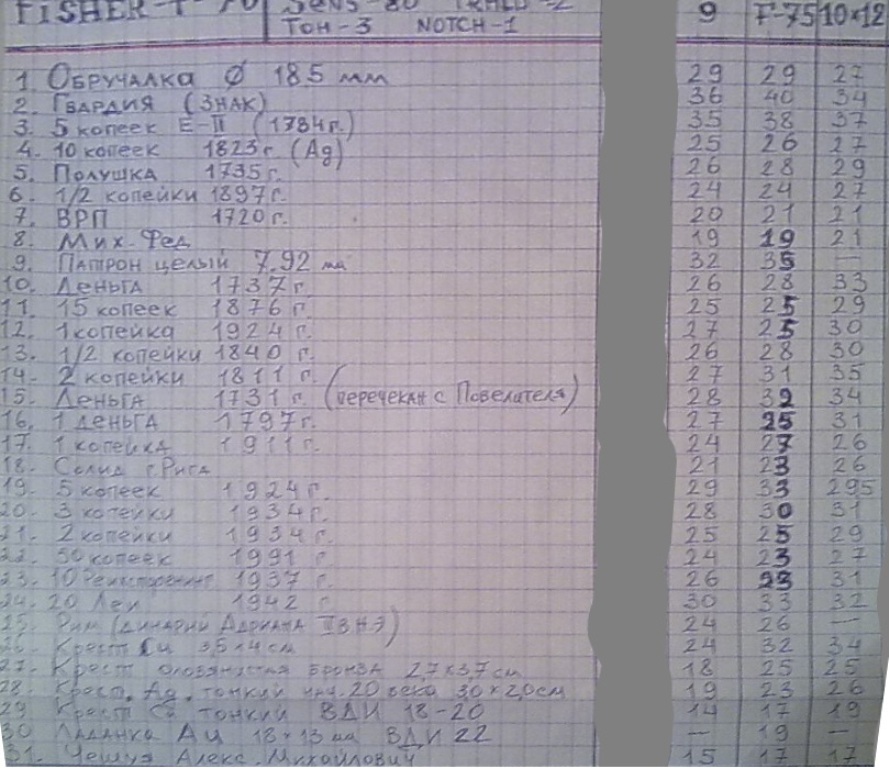 FISHER-F-70 SENS-80 9 F-75 10×12
ТОН-3 NOTCH-1
1 Обручалка Ø 18.5 мм 29 29 27
2. Гвардия (Знак) 36 40 34
3. 5 копеек Е-II (1784г.) 35 38 37
4. 10 копеек 1823г (Ag) 25 26 27
5. Полушка 1735г. 26 28 29
6. 1/2 копейки 1897г. 24 24 27
7. ВРП 1720г. 20 21 21
8. Мих-Фед 19 19 21
9. Патрон целый 7.92 мм 32 35 —
10. Деньга 1737г. 26 28 33
11. 15 копеек 1876г. 25 25 29
12. 1 копейка 1924г. 27 25 30
13. 1/2 копейки 1840г. 26 28 30
14. 2 копейки 1811г. 27 31 35
15. Деньга 1731г. (перечекан с Повелителя) 28 32 34
16. 1 деньга 1797г. 27 25 31
17. 1 копейка 1911г. 24 27 26
18. Солид г.Рига 21 23 26
19. 5 копеек 1924г. 29 33 29.5
20. 3 копейки 1934г. 28 30 31
21. 2 копейки 1934г. 25 25 29
22. 50 копеек 1991г 24 23 27
23. 10 Рейхспфенинг 1937г. 26 31
24. 20 Леи 1942г 30 33 32
25. Рим (динарий Адриана II в н э) 24 26 —
26. Крест Cu 3,5×4см 24 32 34
27. Крест оловянистая бронза 2,7×3,7см 18 25 25
28. Крест. Ag. тонкий нач. 20 века 30×20см 19 23 26
29 Крест тонкий ВДИ 18-20 14 17 19
30 Ладанка Au 18×13 мм ВДИ 22 — 19 —
31. Чешуя Алекс. Михайлович 15 17 17